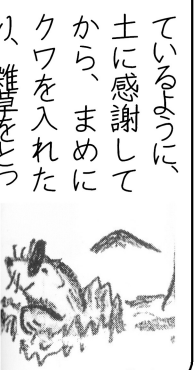 ているように、
土に感謝して
から、まめに
クワを入れた
り、雑草をとっ